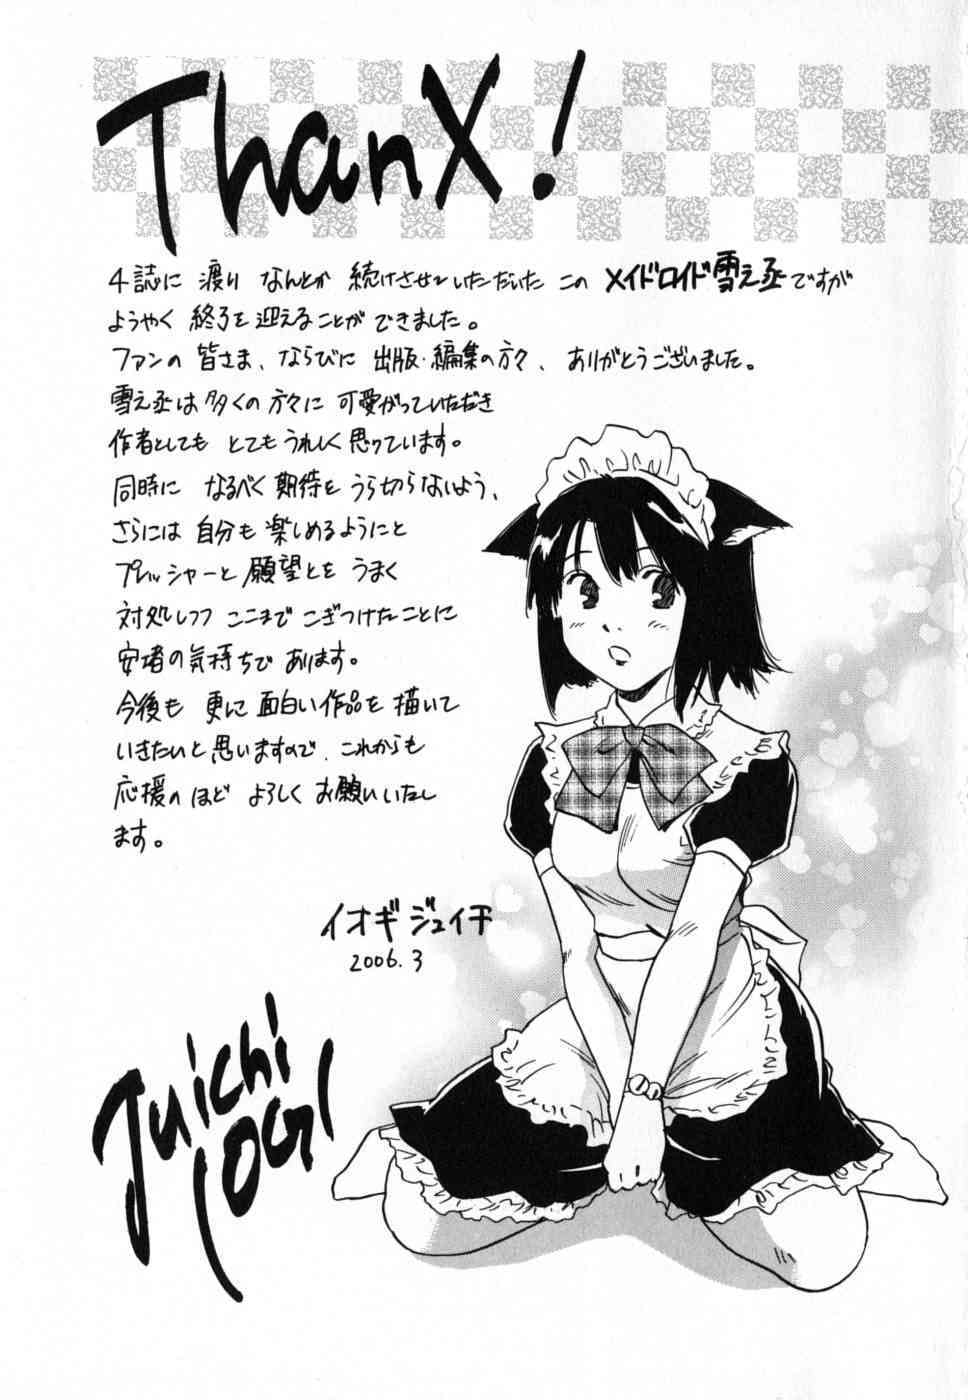 ThanX!
4誌に渡り なんとか 続けさせていただいた この メイドロイド雪之丞ですが
ようやく 終了を迎えることができました。
ファンの 皆さま、ならびに 出版・編集の方々、ありがとうございました。
雪之丞は多くの 方々に 可愛がっていただき
作者としても とても うれしく 思っています。
同時に なるべく 期待を うら切らないよう、
さらには 自分も 楽しめるようにと
プレッシャーと 願望とを うまく
対処しつつ ここまで こぎつけたことに
安堵の気持ちで あります。
今後も 更に 面白い作品を 描いて
いきたいと 思いますので、これからも
応援のほど よろしく お願いいたし
ます。
イオギ ジュイチ
2006.3
Juichi
IOGI